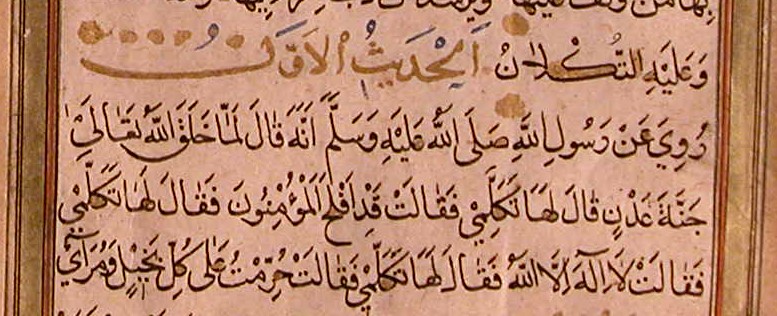 وَعَلَيْهِ التُّكْلَانُ اَلْحَدِيثُ الْاَوَّلُ
رُوِيَ عَنْ رَسُولِ اللَّهِ صَلَّى اللَّهُ عَلَيْهِ وَسَلَّمَ اَنَّهُ قَالَ لَمَّا خَلَقَ اللَّهُ تَعَالَى
جَنَّةَ عَدْنٍ قَالَ لَهَا تَكَلَّمِي فَقَالَتْ قَدْ اَفْلَحَ الْمُؤْمِنُونَ فَقَالَ لَهَا تَكَلَّمِي
فَقَالَتْ لَا اِلَهَ اِلَّا اللَّهُ فَقَالَ لَهَا تَكَلَّمِي فَقَالَتْ حُرِّمْتُ عَلَى كُلِّ بَخِيلٍ وَمُرَآئٍ